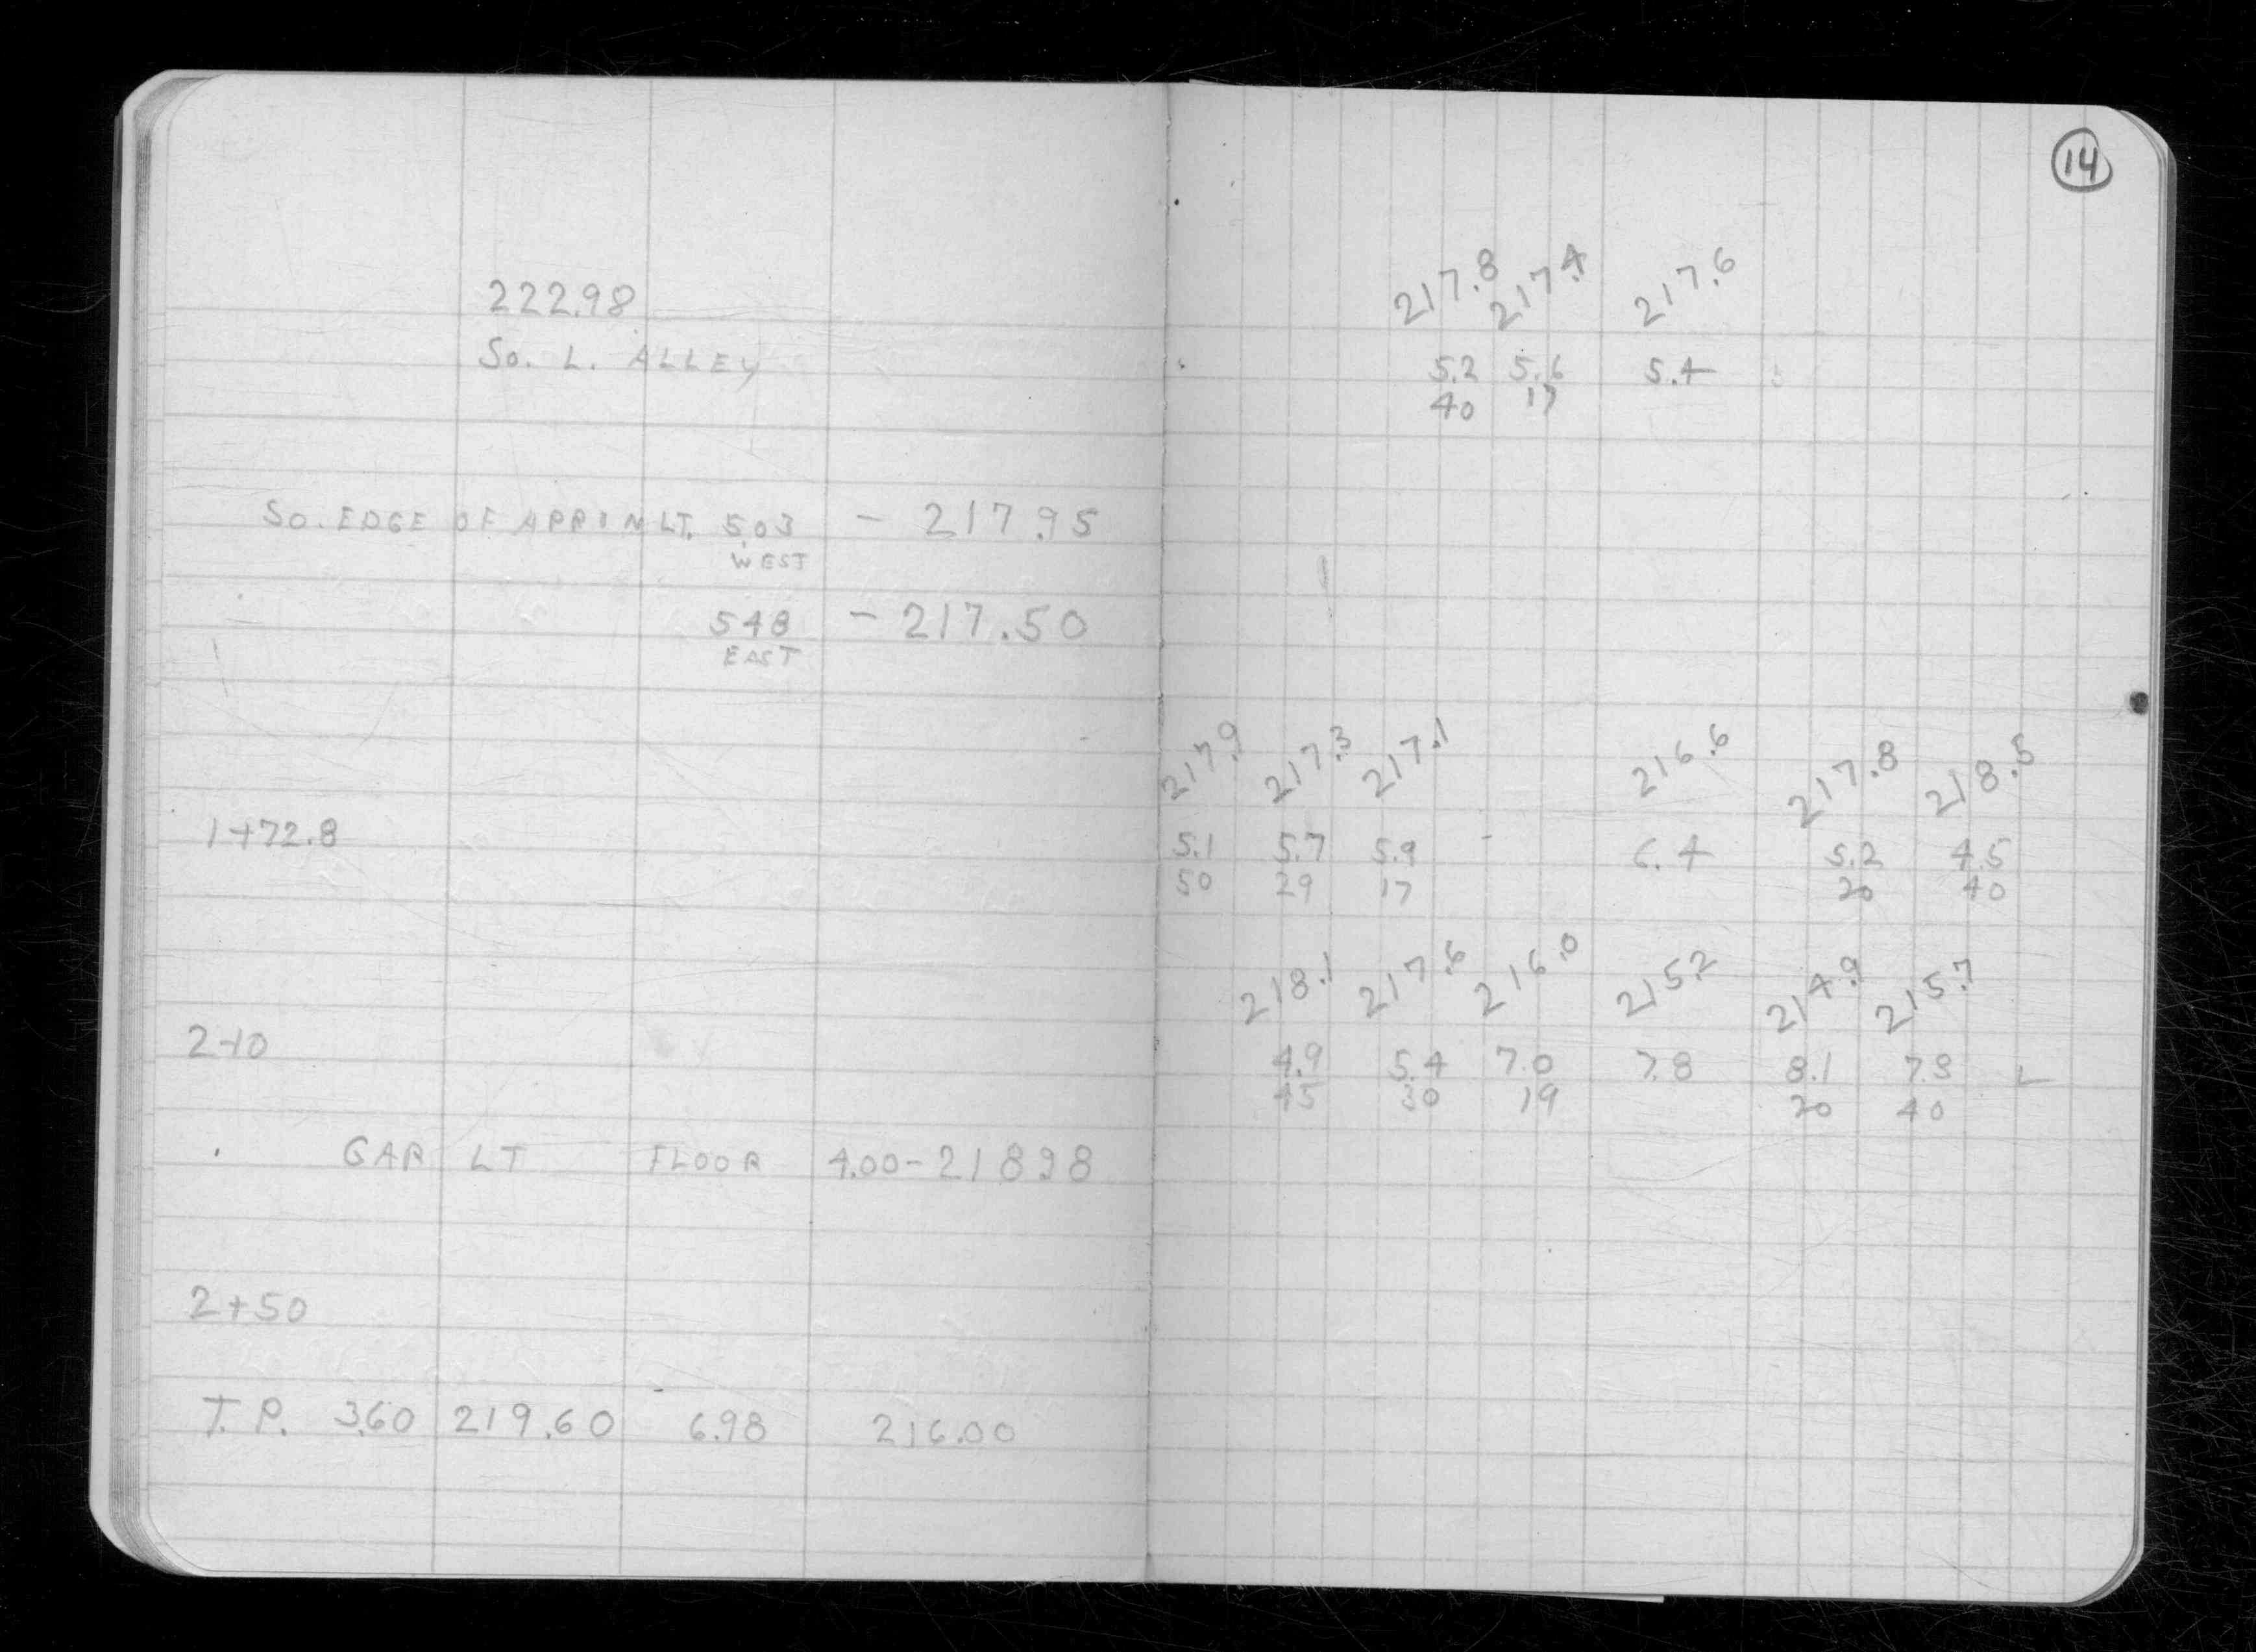 14
222.98
217.8 217.4 217.6
So. L. ALLEY
5.2 5.6 5.4
40 17
So. EDGE OF APRON LT. 5.03 - 217.95
WEST
5.48 - 217.50
EAST
217.9 217.3 217.1 216.6 217.8 218.5
1+72.8
5.1 5.7 5.9 6.4 5.2 4.5
50 29 17 20 40
218.1 217.6 216.0 215.2 214.9 215.7
2+10
4.9 5.4 7.0 7.8 8.1 7.3
45 30 19 20 40
GAR LT FLOOR 4.00-218.98
2+50
T.P. 3.60 219.60 6.98 216.00